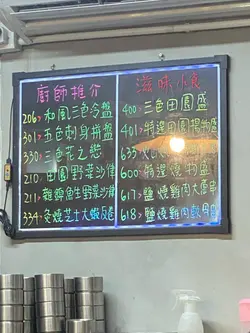 廚師推介
206> 和風三色冷盤
301> 五色刺身拼盤
330> 三色花之戀
210> 田園野菜沙律
211> 雜錦魚生野菜沙律
334> 炙燒芝士大蝦
滋味小食
400> 三色田園盛
401> 特選田園揚物盛
635>
600> 特選燒物盛
617> 鹽燒雞肉大
618> 鹽燒雞肉